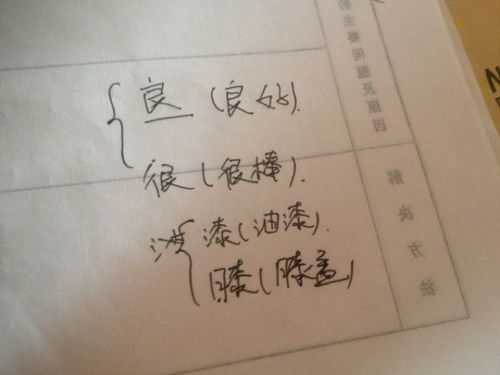 良（良好）.
很（很棒）.
漆（油漆）.
膝（膝盖）